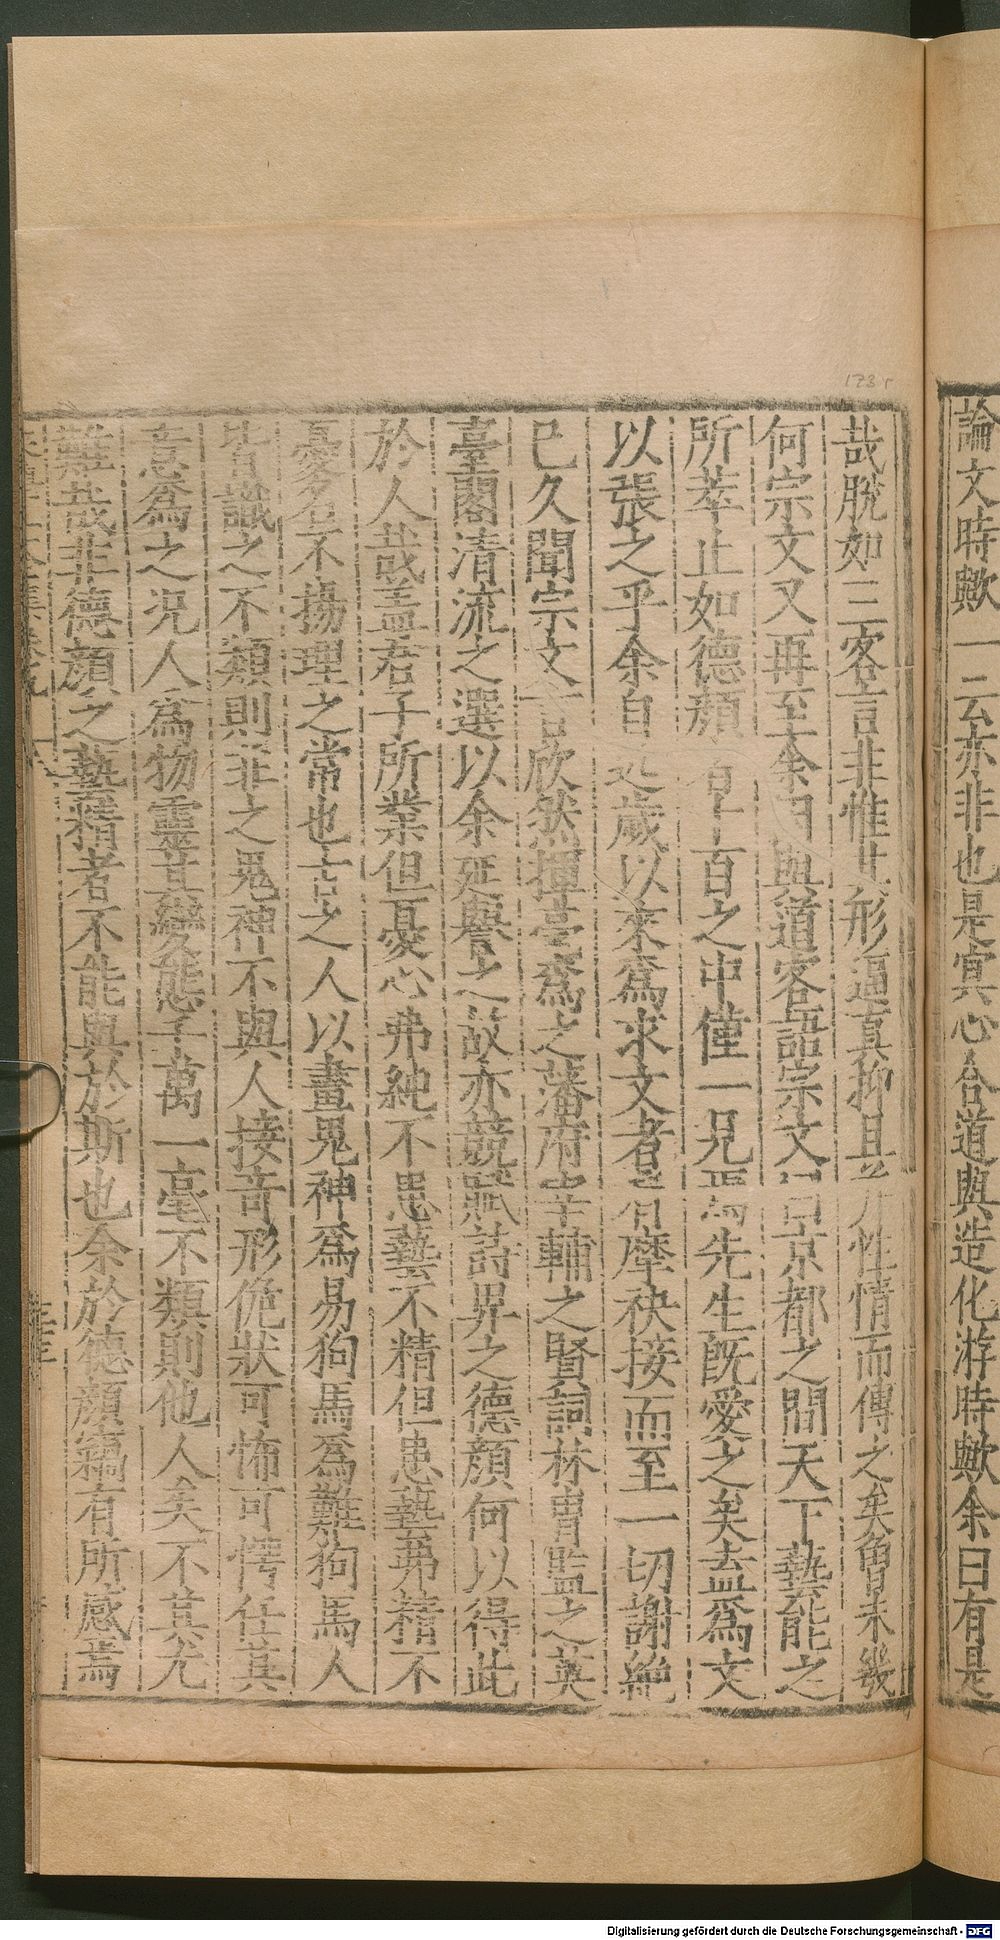 論文時歟一云亦非也是寘心合道與造化游時歟余曰有是
哉脫如三客言非惟生形逼真抑且并性情而傳之矣魯未幾
何宗文又再至余曰與道客語宗文曰京都之間天下藝能之
所萃止如德顏者千百之中僅一見焉先生旣愛之矣盍爲文
以張之乎余自近歲以來爲求文者肩摩袂接而至一切謝絶
已久聞宗文言欣然揮毫爲之藩府宰輔之賢詞林胄監之英
臺閣清流之選以余延譽之故亦競賦詩畀之德顏何以得此
於人哉盖君子所業但憂心弗純不患藝不精但患藝弗精不
憂名不揚理之常也古之人以畫鬼神爲易狗馬爲難狗馬人
皆識之不類則非之鬼神不與人接竒形佹狀可怖可愕任其
意爲之况人爲物靈其變態千萬一毫不類則他人矣不其尤
難哉非德顏之藝精者不能與於斯也余於德顏竊有所感焉